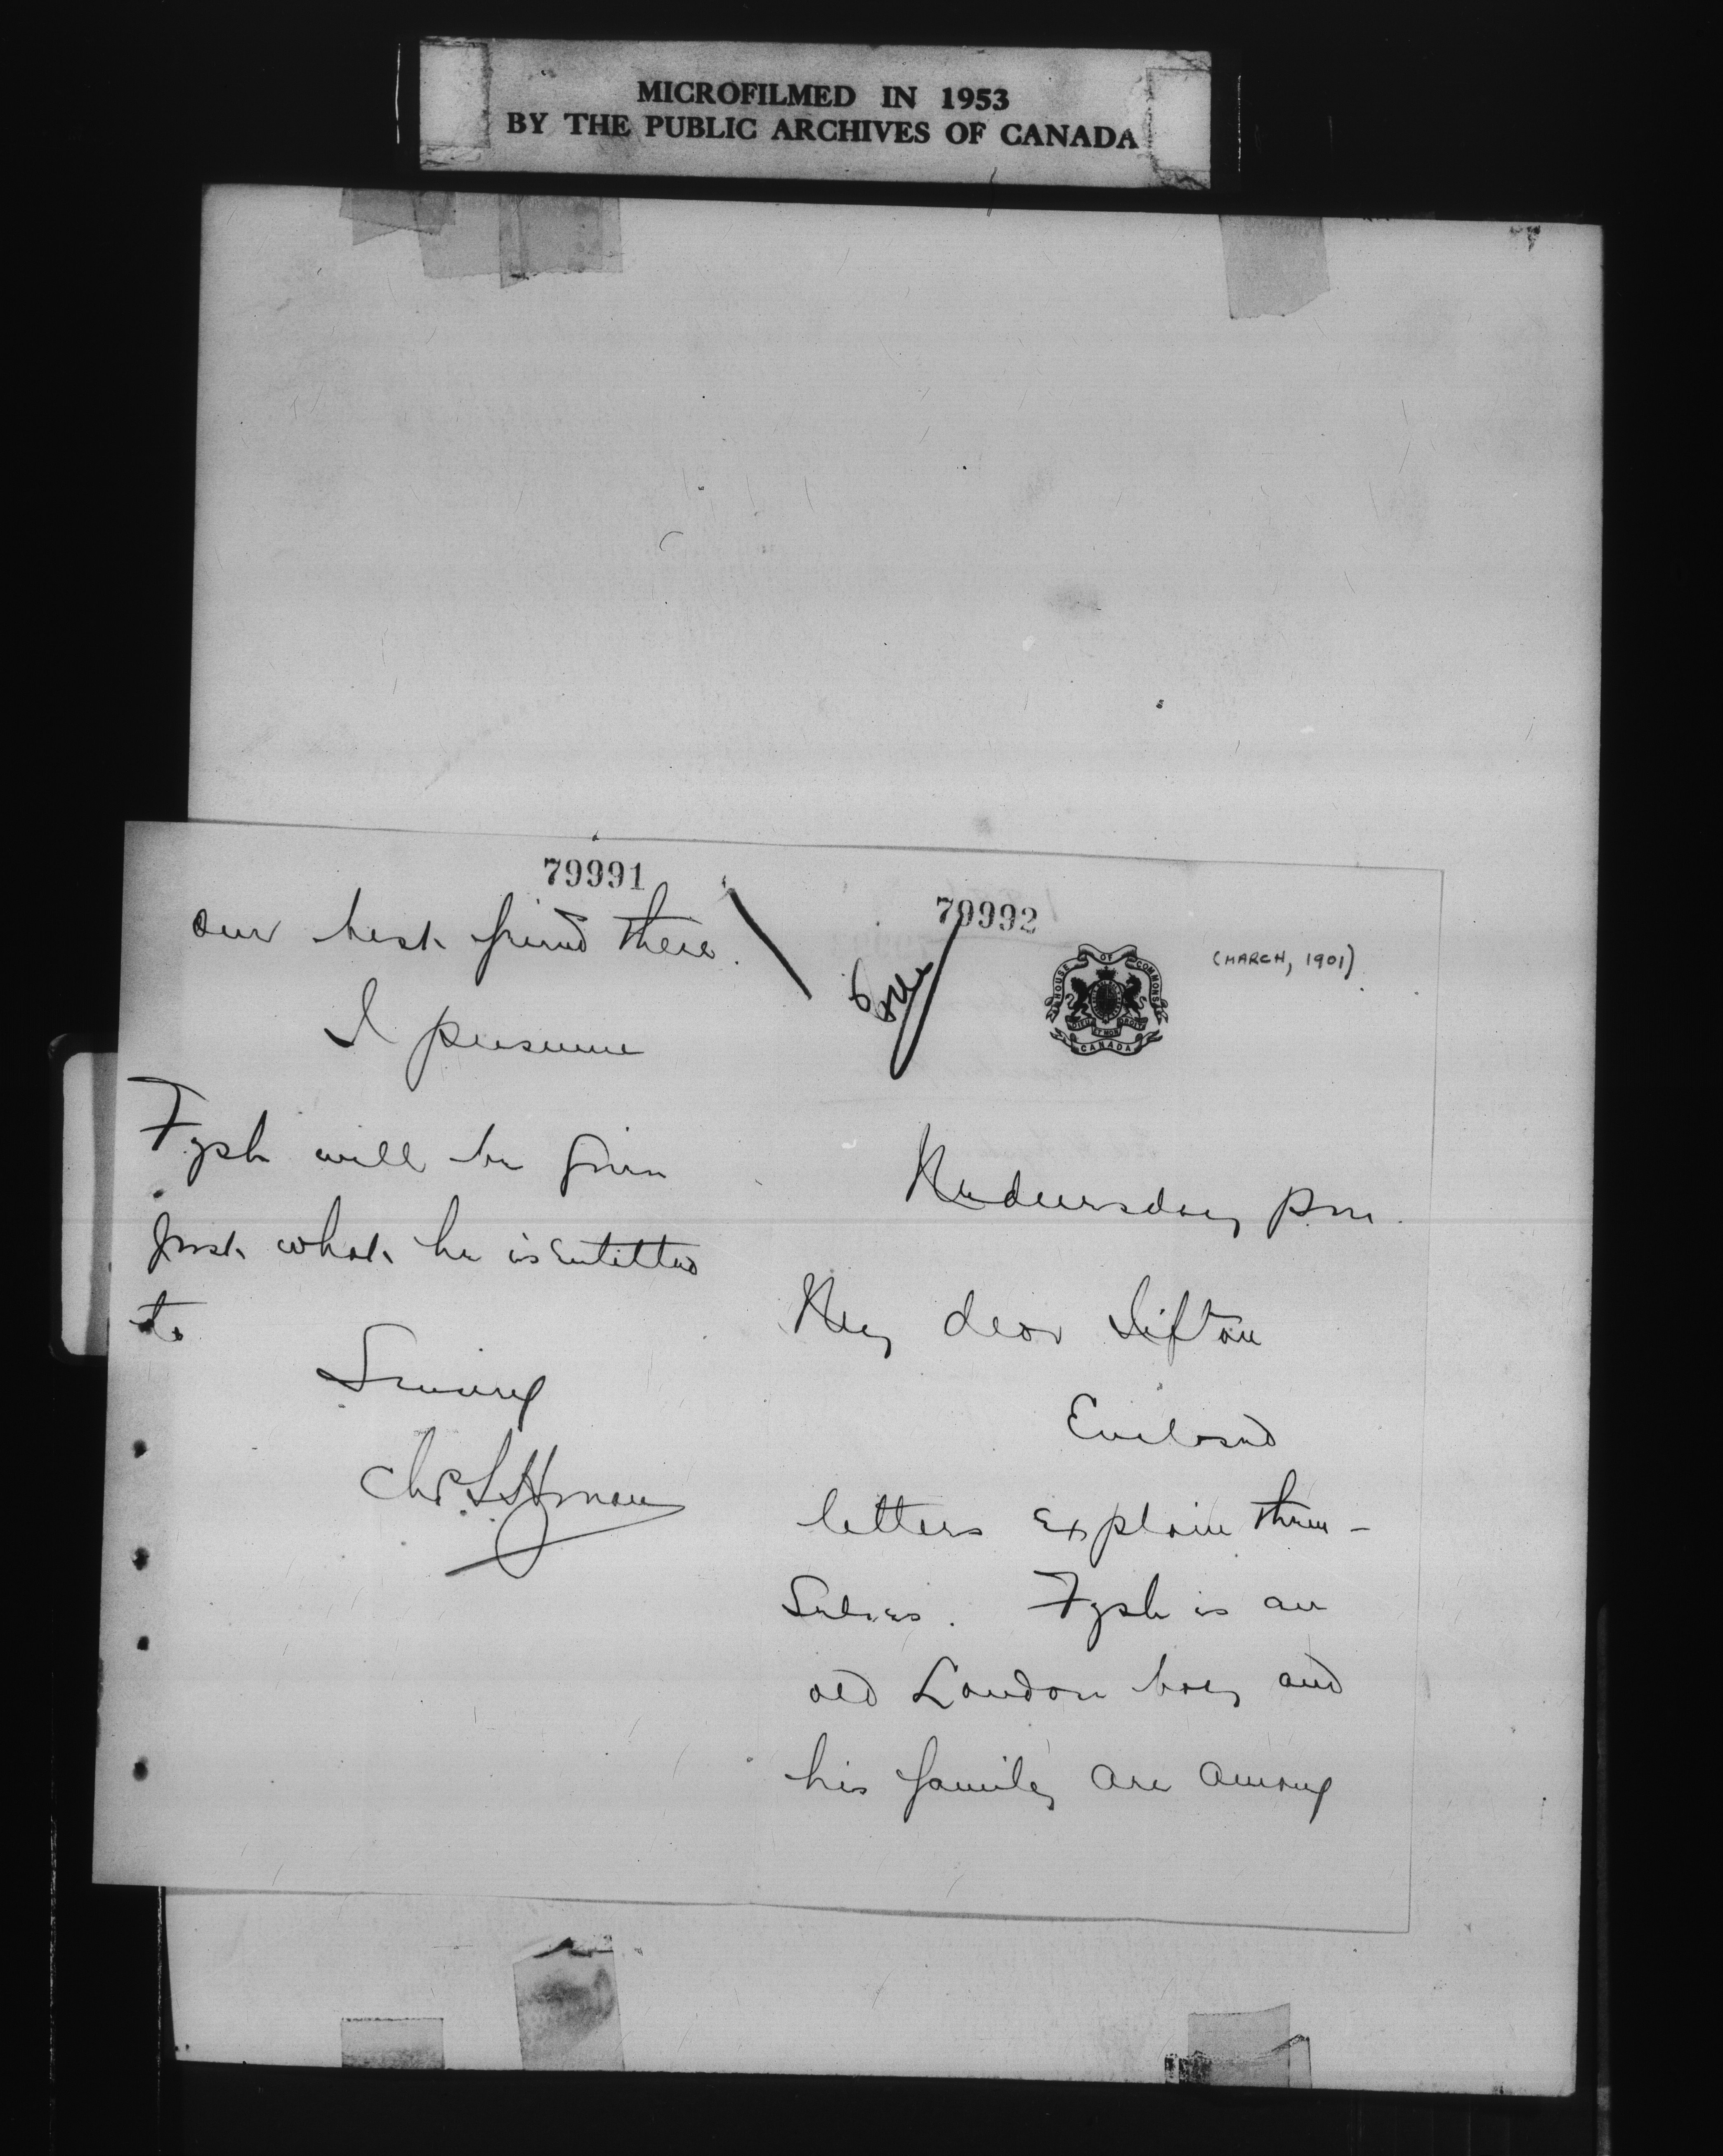 MICROFILMED IN 1953
BY THE PUBLIC ARCHIVES OF CANADA
79992
(MARCH, 1901)
HOUSE OF COMMONS
DIEU ET MON DROIT
CANADA
Wednesday pm.
My dear Sifton
Enclosed
letters explain them-
selves. Fysh is an
old London boy and
his family are among
79991
our best friends there.
I presume
Fysh will be given
just what he is entitled
to
Sincerely
Chas. S. Hyman